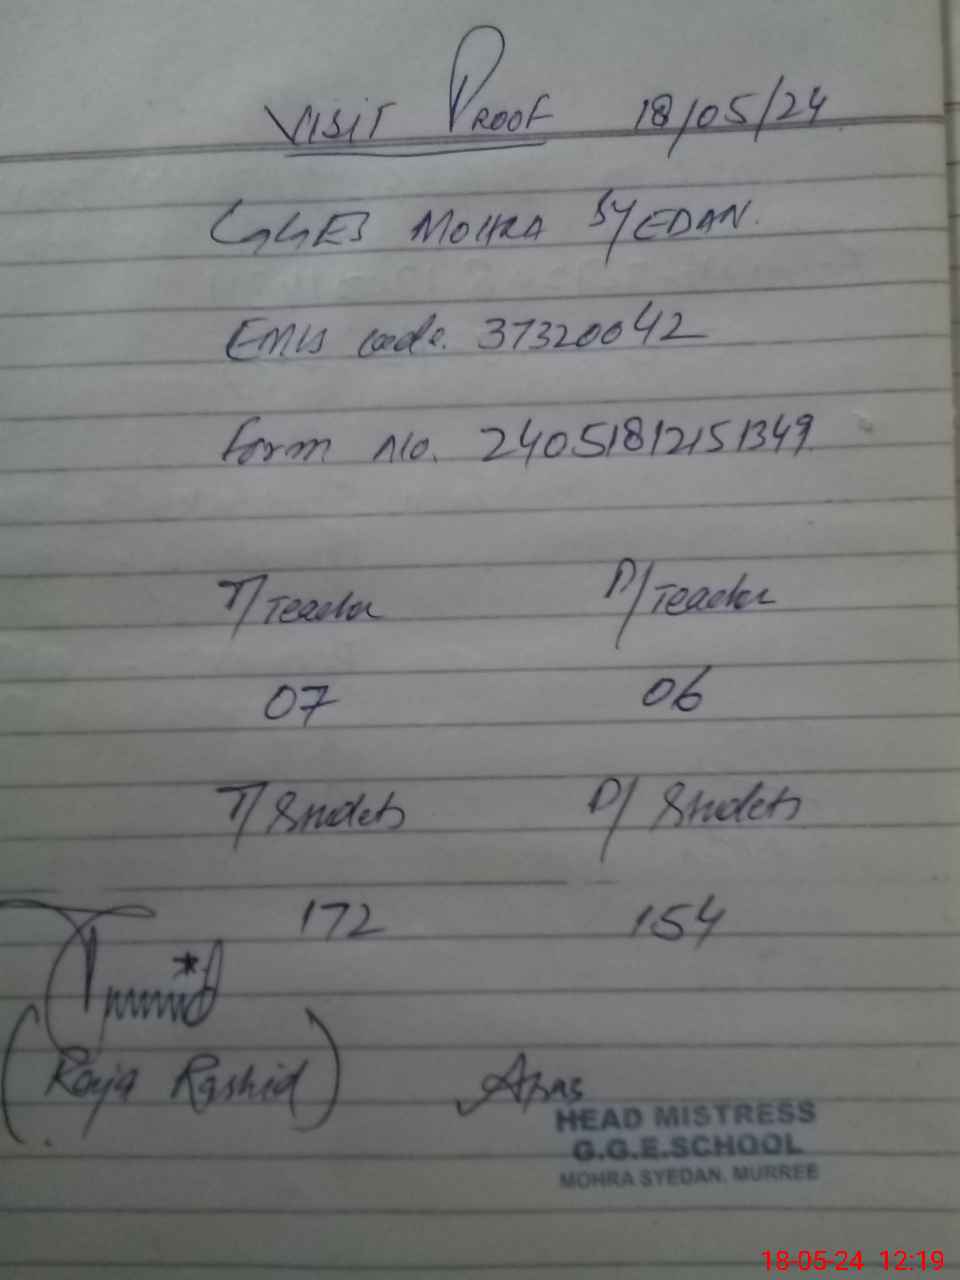 VISIT PROOF 18/05/24
GGES MOHRA SYEDAN.
EMIS code. 37320042
Form No. 24051812151349
T/Teacher P/Teacher
07 06
T/Students P/Students
172 154
(Raja Rashid)
HEAD MISTRESS
G.G.E.SCHOOL
MOHRA SYEDAN. MURREE
18-05-24 12:19